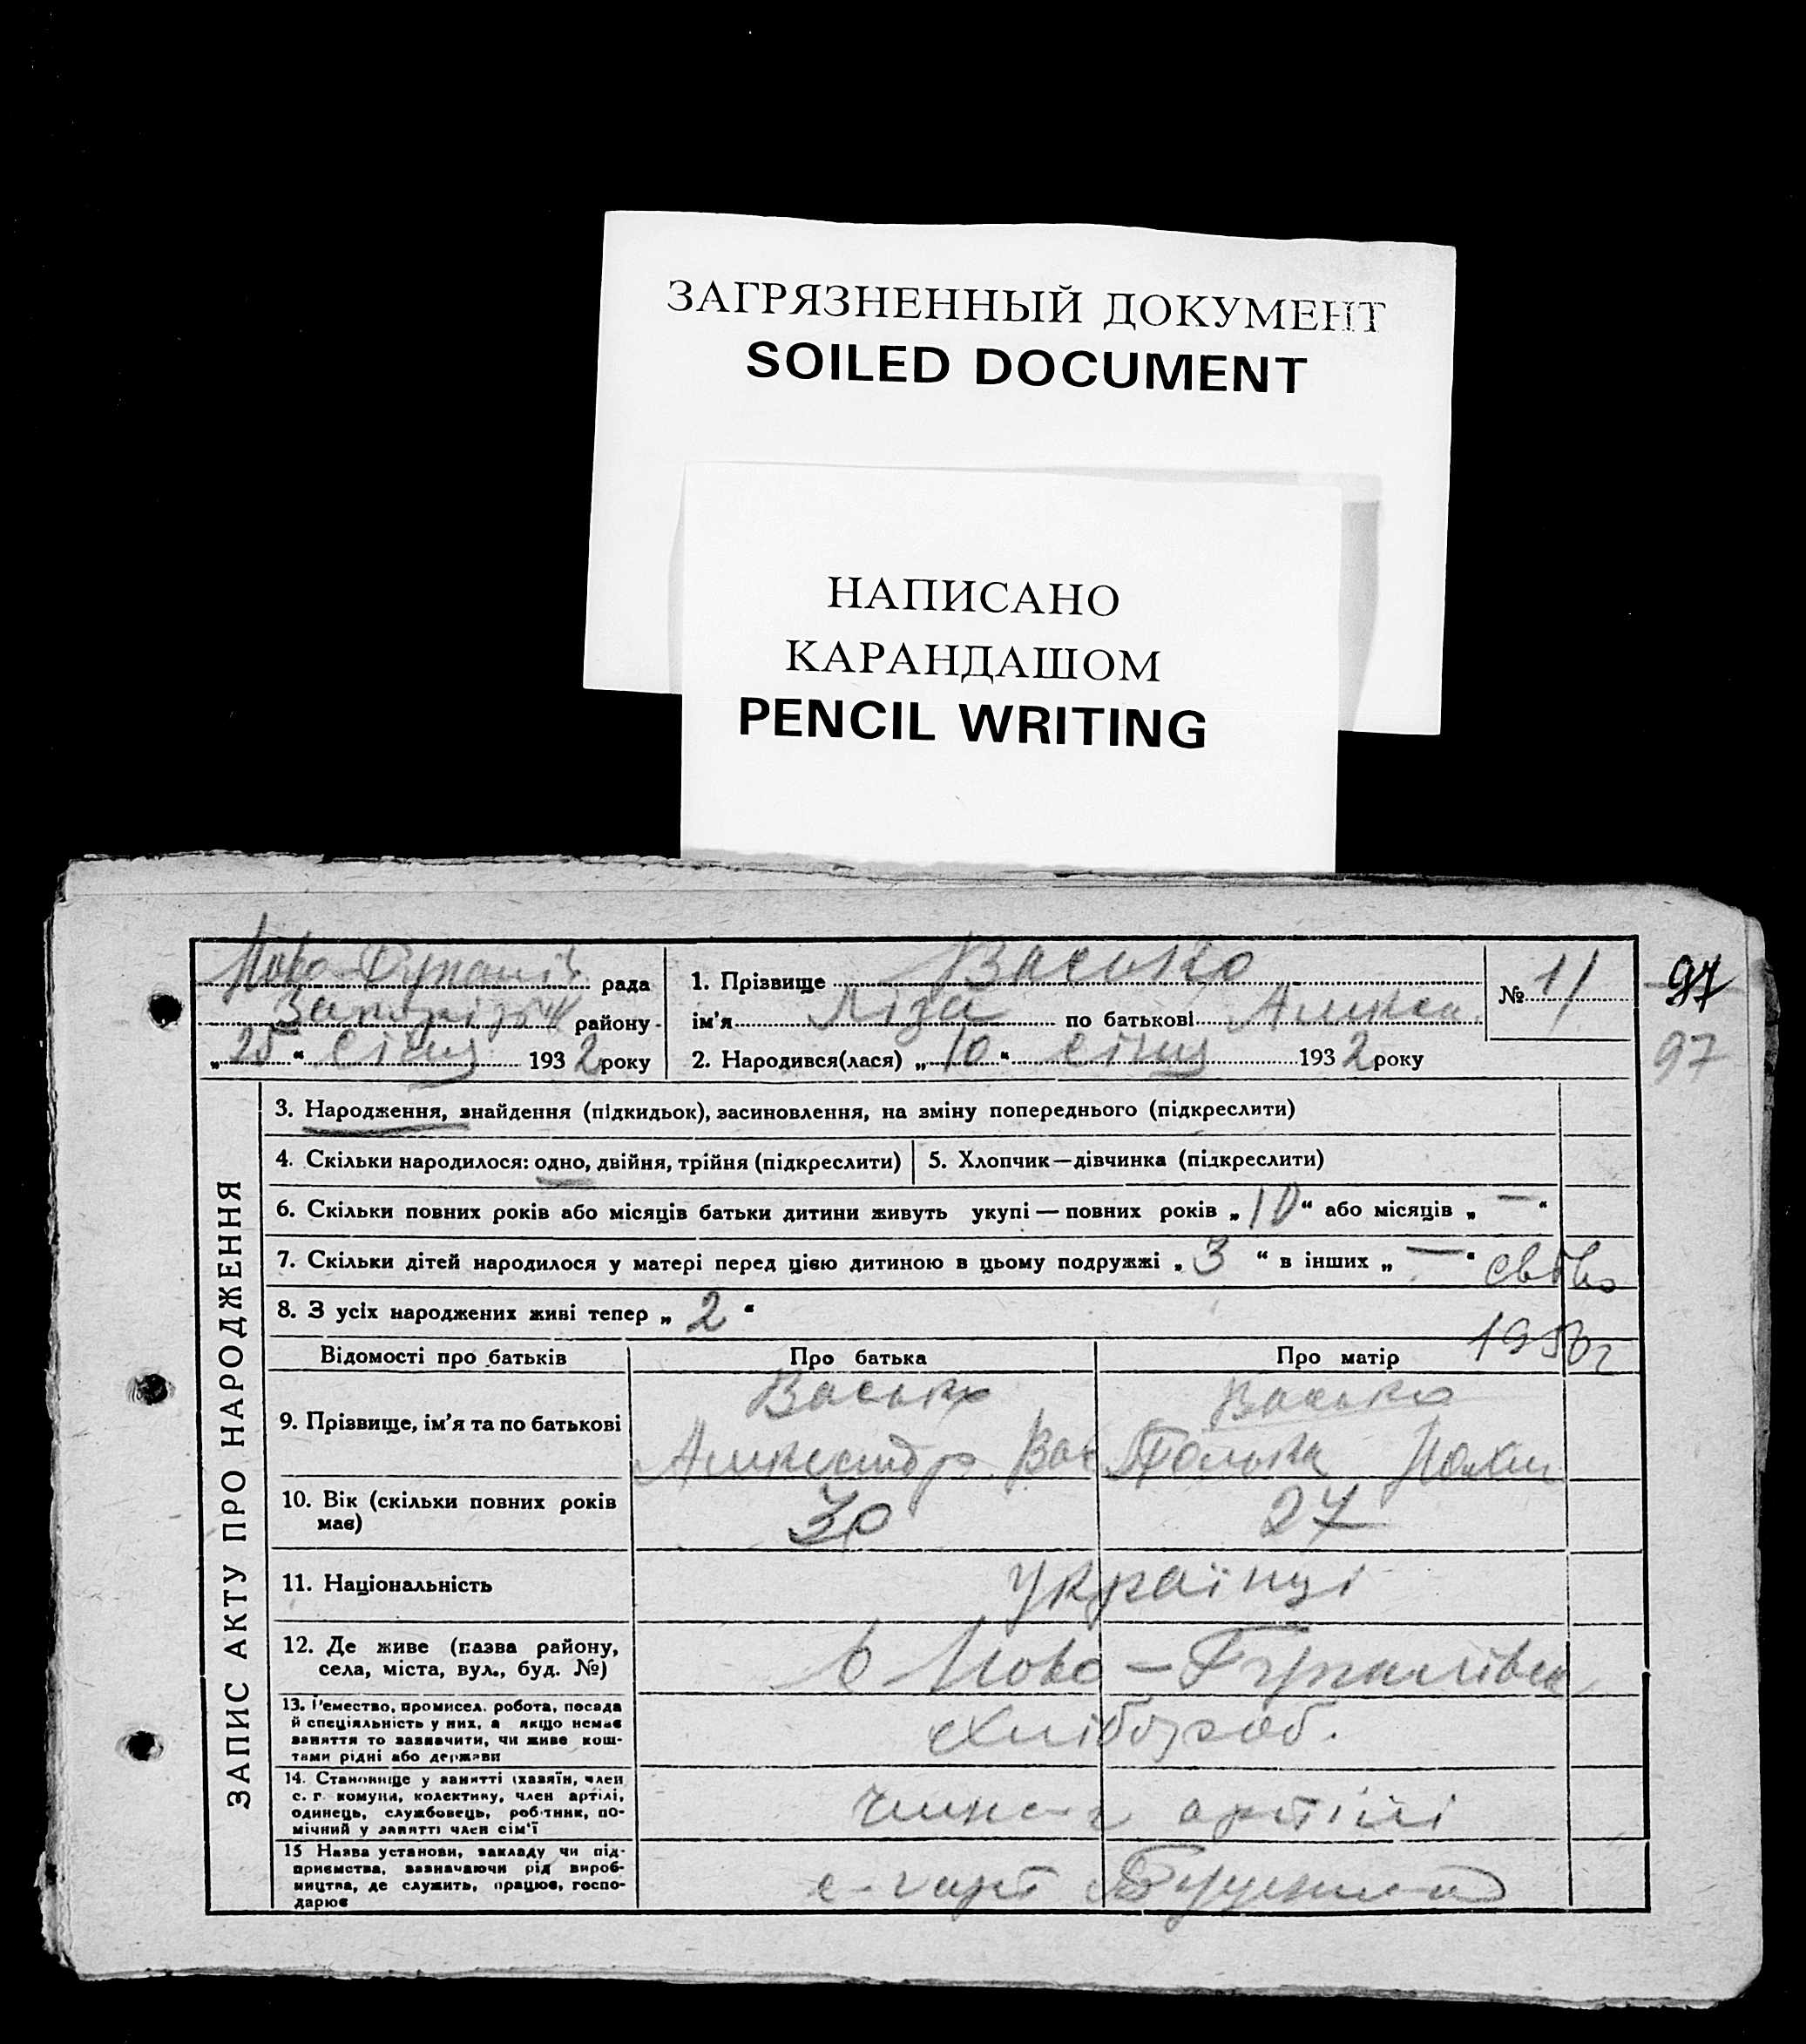 ЗАГРЯЗНЕННЫЙ ДОКУМЕНТ
SOILED DOCUMENT
НАПИСАНО
КАРАНДАШОМ
PENCIL WRITING
рада
району
„25“ січня 1932 року
1. Прізвище Васько
ім'я Ліза по батькові Алекса.
2. Народився(лася) „10“ січня 1932 року
№ 11
97
97
ЗАПИС АКТУ ПРО НАРОДЖЕННЯ
3. Народження, знайдення (підкидьок), засиновлення, на зміну попереднього (підкреслити)
4. Скільки народилося: одно, двійня, трійня (підкреслити)
5. Хлопчик—дівчинка (підкреслити)
6. Скільки повних років або місяців батьки дитини живуть укупі — повних років „10“ або місяців „—“
7. Скільки дітей народилося у матері перед цією дитиною в цьому подружжі „3“ в інших „—“
8. З усіх народжених живі тепер „2“
Відомості про батьків Про батька Про матір
9. Прізвище, ім'я та по батькові
Васько
Александр Вас
Васько
10. Вік (скільки повних років
має)
30
27
11. Національність
Українці
12. Де живе (назва району,
села, міста, вул., буд. №)
с Ново-
13. Ремество, промисел, робота, посада
й спеціяльність у них, а якщо немає
заняття то зазначити, чи живе кош-
тами рідні або держави
Хлібороб.
14. Становище у занятті (хазяїн, член
с. г. комуни, колективу, член артілі,
одинець, службовець, робітник, по-
мічний у занятті член сім'ї
член артілі
15 Назва установи, закладу чи під-
приємства, зазначаючи рід вироб-
ництва, де служить, працює, госпо-
дарює